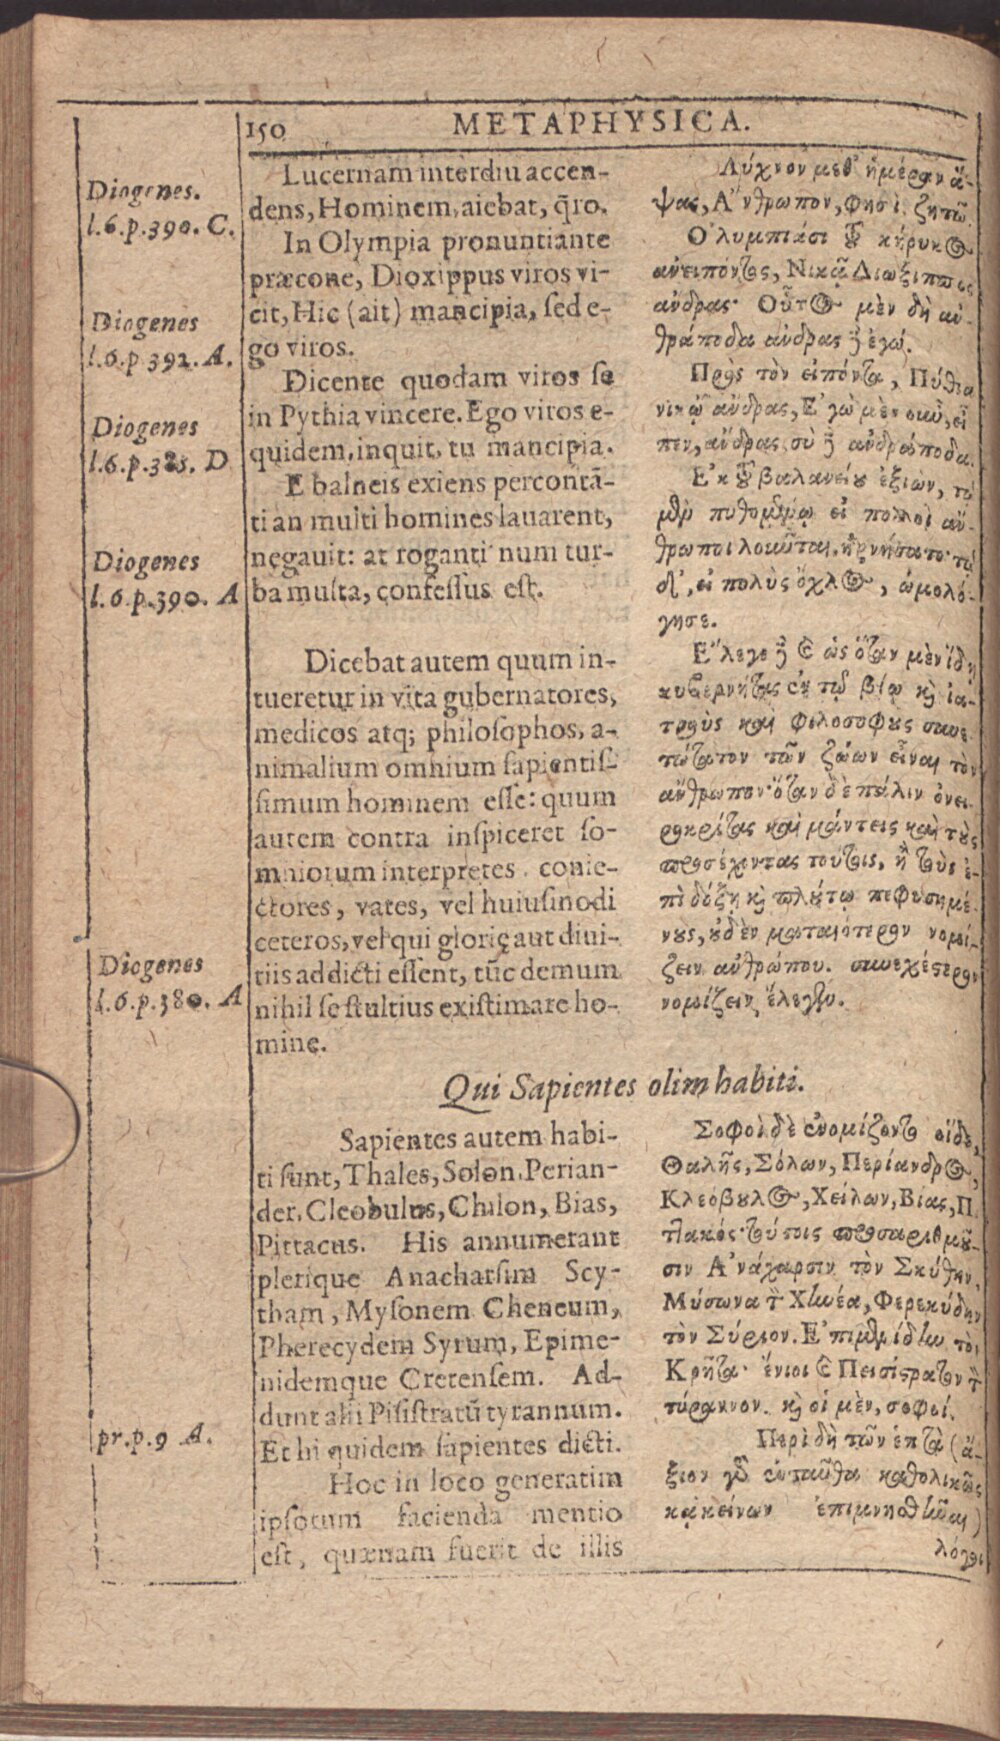 150 METAPHYSICA.
Diogenes.
l.6.p.390. C.
Diogenes
l.6.p 392. A.
Diogenes
l.6.p.385. D
Diogenes
l.6.p.390. A
Diogenes
l.6.p.380. A
pr.p.9 A.
Lucernam interdiu accen-
dens, Hominem, aiebat, q̄ro.
In Olympia pronuntiante
præcone, Dioxippus viros vi-
cit, Hic (ait) mancipia, ſed e-
go viros.
Dicente quodam viros ſe
in Pythia vincere. Ego viros e-
quidem, inquit, tu mancipia.
E balneis exiens percontā-
ti an multi homines lauarent,
negauit: at roganti num tur-
ba multa, confeſſus eſt.
Dicebat autem quum in-
tueretur in vita gubernatores,
medicos atq; philoſophos, a-
nimalium omnium ſapientiſ-
ſimum hominem eſſe: quum
autem contra inſpiceret ſo-
mniorum interpretes, conie-
ctores, vates, vel huiuſmodi
ceteros, vel qui glorię aut diui-
tiis addicti eſſent, tūc demum
nihil ſe ſtultius exiſtimare ho-
mine.
Λύχνον μεθ' ἡμέραν ἅ-
ψας, Α῎νθρωπον, φησὶ, ζητῶ.
Ο᾿λυμπιάσι τȣ͂ κήρυκος
ἀνειπόντος, Νικᾷ Διωξιππος
ἄνδρας· Οὗτος μὲν δὴ ἀν-
θράποδα ἄνδρας δ ἐγώ.
Πρὸς τὸν εἰπόντα, Πύθια
νικῶ ἄνδρας, Ε᾿γὼ μὲν οὖν, εἶ-
πεν, ἄνδρας, σὺ δ ἀνδράποδα.
Ε᾿κ τȣ͂ βαλανείȣ ἐξιὼν, τῷ
μὲν πυθομένῳ εἰ πολλοὶ ἄν-
θρωποι λοῦνται, ἠρνήσατο· τῷ
δ', εἰ πολὺς ὄχλος, ὡμολό-
γησε.
Ε῎λεγε δ καὶ ὡς ὅταν μὲν ἴδῃ
κυβερνήτας ἐν τῷ βίῳ καὶ ἰα-
τρȣ̀ς καὶ φιλοσόφȣς συνε-
τώτατον τῶν ζώων εἶναι τὸν
ἄνθρωπον· ὅταν δὲ πάλιν ὀνει-
ροκρίτας καὶ μάντεις καὶ τȣ̀ς
προσέχοντας τούτοις, ἢ τοὺς ἐ-
πὶ δόξῃ καὶ πλȣ́τῳ πεφυσημέ-
νȣς, ȣ̓δὲν ματαιότερον νομί-
ζειν ἀνθρώπου. συνεχέστερον
νομίζειν ἔλεγεν.
Qui Sapientes olim habiti.
Sapientes autem habi-
ti ſunt, Thales, Solon, Perian-
der, Cleobulus, Chilon, Bias,
Pittacus. His annumerant
plerique Anacharſim Scy-
tham, Myſonem Cheneum,
Pherecydem Syrum, Epime-
nidemque Cretenſem. Ad-
dunt alii Piſiſtratū tyrannum.
Et hi quidem ſapientes dicti.
Hoc in loco generatim
ipſorum facienda mentio
eſt, quænam fuerit de illis
Σοφοὶ δὲ ἐνομίζοντο οἵδε,
Θαλῆς, Σόλων, Περίανδρος,
Κλεόβȣλος, Χείλων, Βίας, Π
τακός· τούτοις προσαριθμȣ͂-
σιν Α᾿νάχαρσιν τὸν Σκύθην,
Μύσωνα τὸν Χηνέα, Φερεκύδην
τὸν Σύριον. Ε᾿πιμενίδην τὸν
Κρῆτα· ἔνιοι καὶ Πεισίστρατον τὸν
τύραννον. καὶ οἱ μὲν, σοφοί.
Περὶ δὴ τῶν επτὰ (ἄ-
ξιον γὰρ ἐνταῦθα καθολικῶς
κᾀκείνων ἐπιμνησθῆναι)
λόγοι